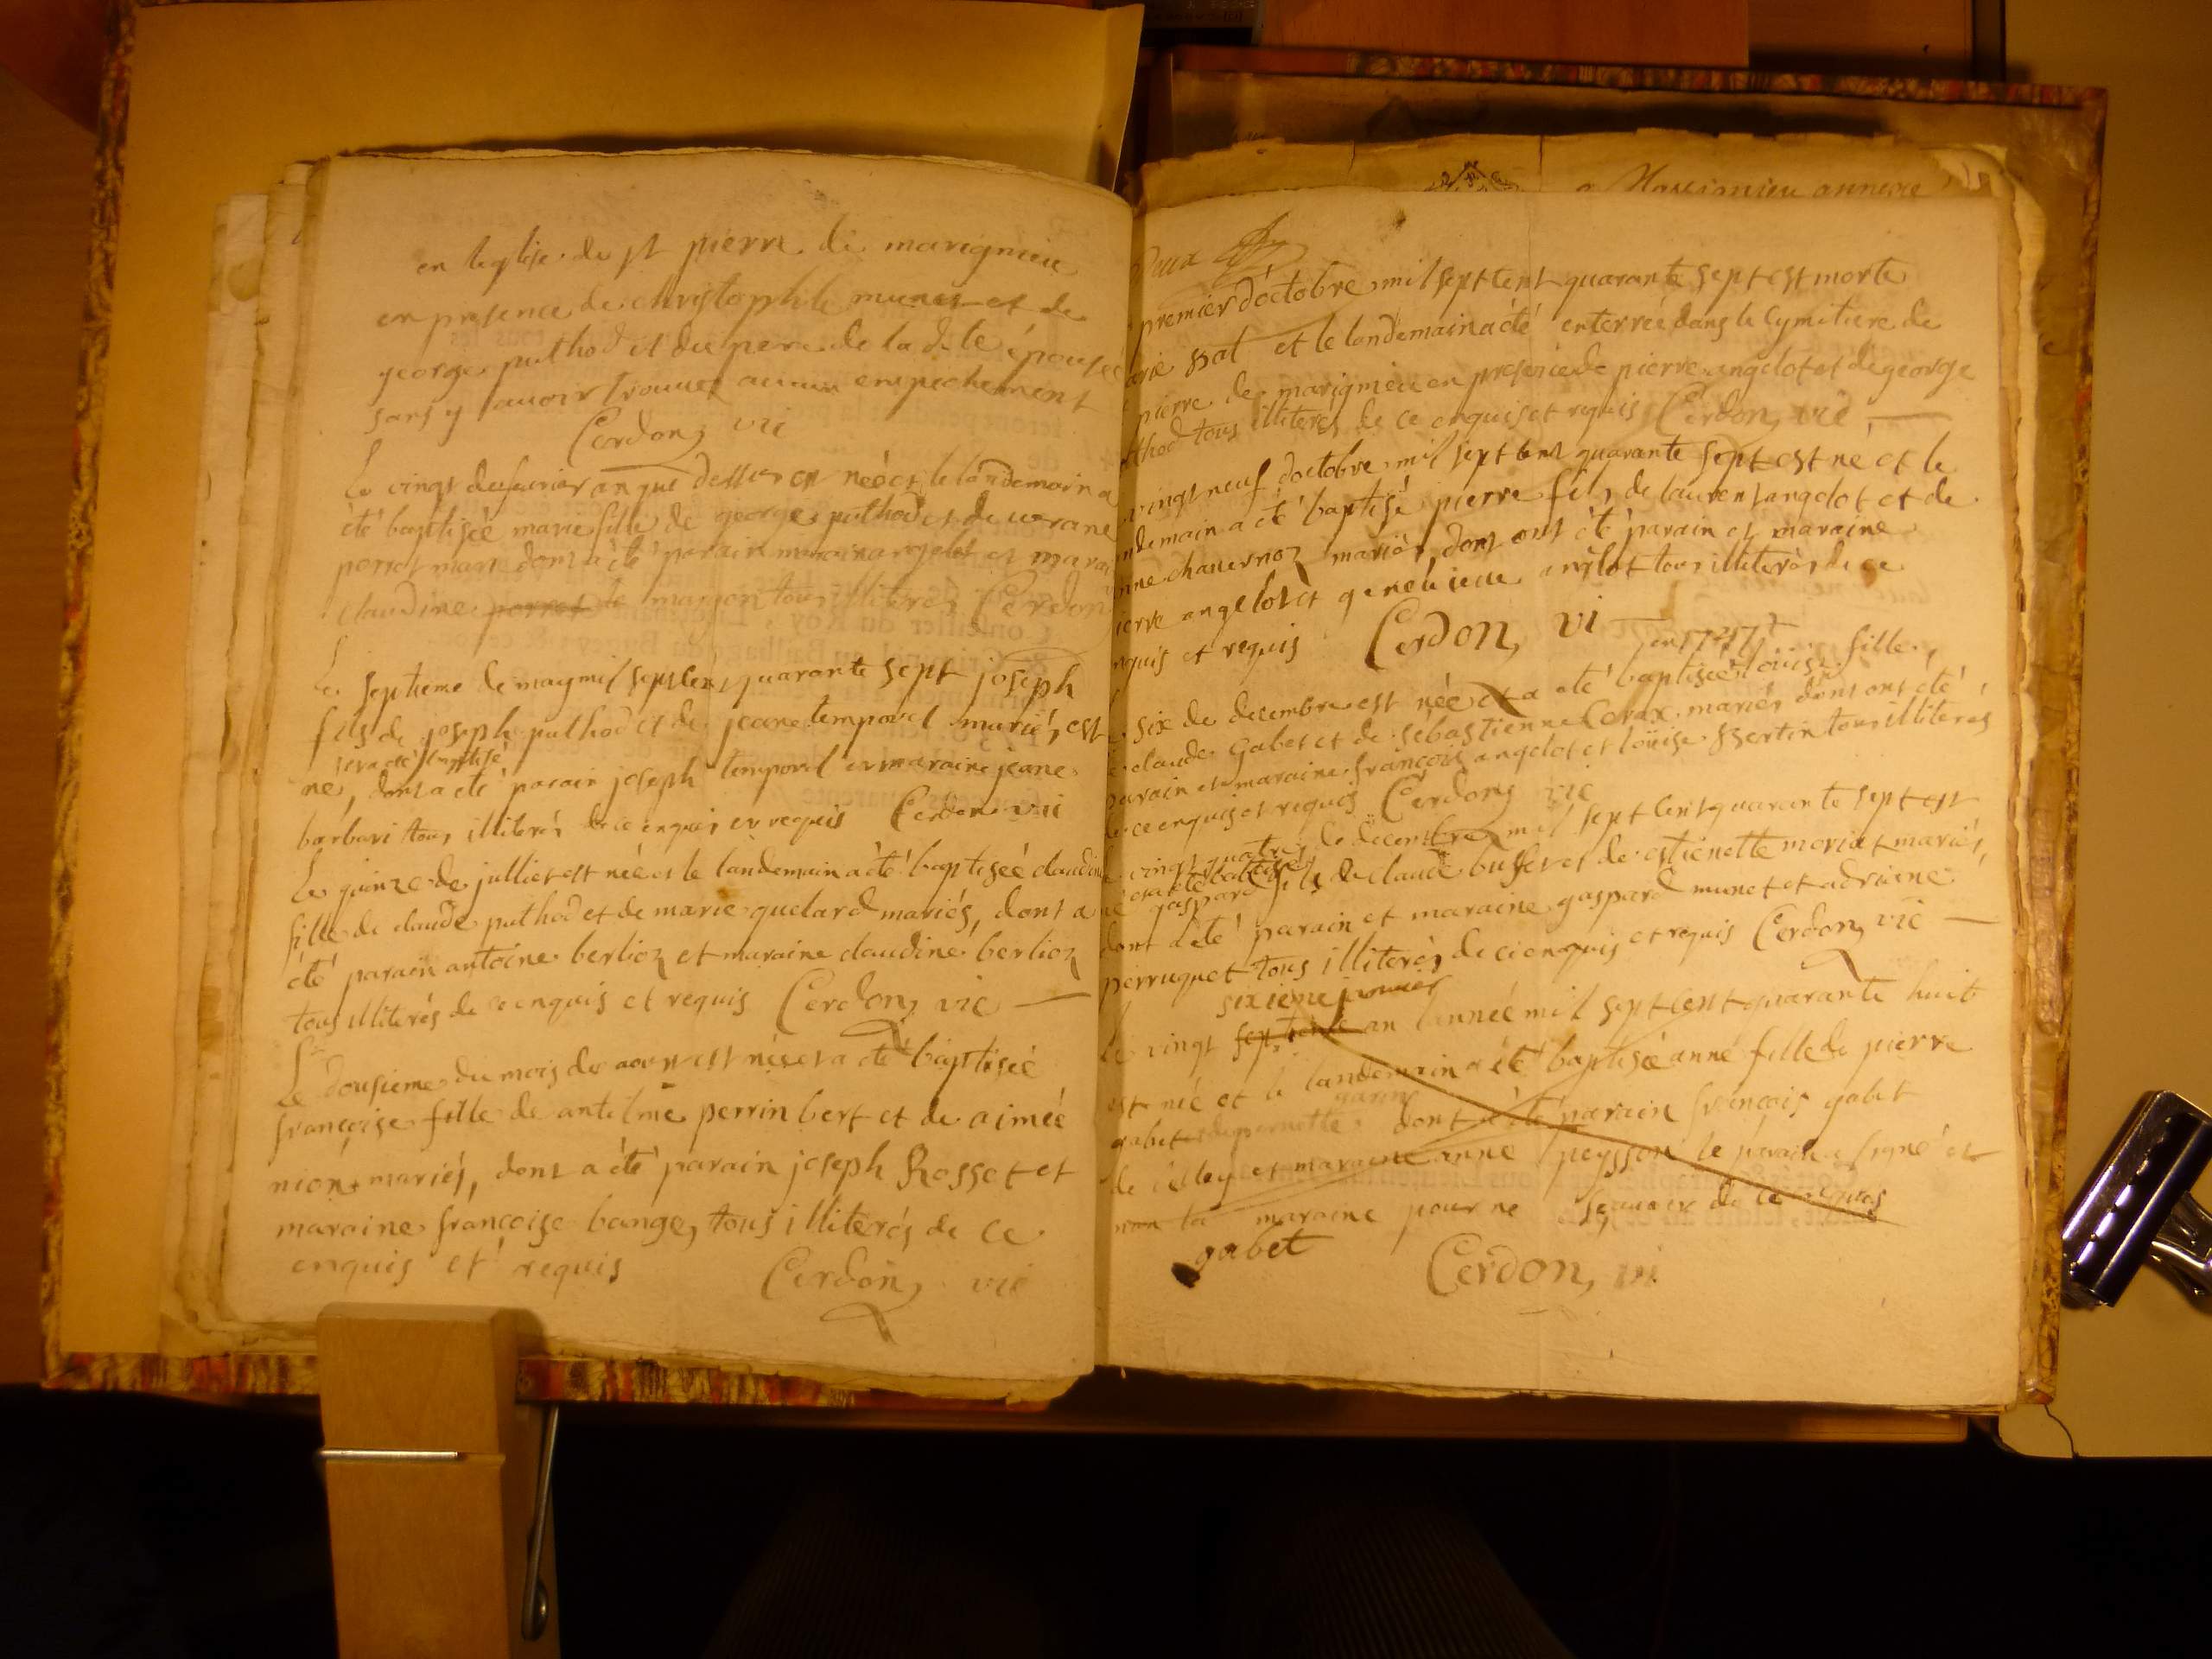 en leglise de st pierre de marignieu
en presence de christophle munet et de
george puthod et du pere de la d.te épousée
sans y avoir trouver aucun empechement
Cerdon, vic
Le vingt de fevrier an que dessus est néé et le landemain a
été baptisée marie fille de george puthod et de
perret mariés dont a été parain angelot et marai
claudine perret le tous illiterés Cerdon
Le septieme de may mil sept cent quarante sept joseph
fils de joseph puthod et de jeane temporel mariés, est
et a été baptisé
né, dont a eté parain joseph temporel et maraine jeane
barbari tous illiterés de ce enquis et requis Cerdon vic
Le quinze de julliet est néé et le landemain a été baptisée claudine
fille de claude puthod et de marie quelard mariés, dont a
été parain antoine berlioz et maraine claudine berlioz
tous illiterés de ce enquis et requis Cerdon, vic
Le dousieme du mois de aoust est néé et a été baptisée
françoise fille de antelme perrin bert et de aimée
nion mariés, dont a été parain joseph Rosset et
maraine françoise bange, tous illiterés de ce
enquis et requis Cerdon, vic
a Massignieu annexe
premier d'octobre mil sept cent quarante sept est morte
arie Bal et le landemain a été enterrée dans le cymitiere de
pierre de marignieu en presence de pierre angelot et de george
thod tous illiterés de ce enquis et requis Cerdon, vic
vingt neuf d'octobre mil sept cent quarante sept est né et le
ndemain a été baptisé pierre fils de laurent angelot et de
nne chavernoz mariés, dont ont été parain et maraine
ierre angelot et genevieve angelot tous illiterés de ce
nquis et requis Cerdon, vi
en 1747
six de decembre est née et a été baptisée loüise fille
claude Gabet et de sebastienne Cerax mariés dont ont été
parain et maraine françois angelot et loüise Bertin tous illiterés
de ce enquis et requis Cerdon, vic
vingt quatre de decembre mil sept cent quarante sept est
et a été batisé
né gaspard fils de claude buffet et de estienette moriat mariés,
dont a été parain et maraine gaspard munet et adriene
perruquet tous illiterés de ce enquis et requis Cerdon, vic
sixieme janvier
le vingt septieme an l'année mil sept cent quarante huit
est née et le landemain a été baptisée anne fille de pierre
garin
gabet et de pernette dont a été parain françois gabet
de et maraine anne peysson le parain a signé et
non la maraine pour ne sçavoir de ce requis
gabet Cerdon, vi